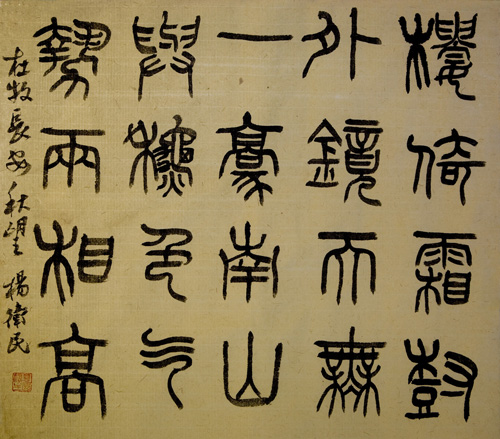 樓倚霜尌
外鏡天無
一豪南山
與秋色气
勢兩相高
杜牧長安秋望 楊衛民